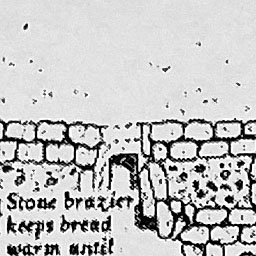 Stone brazier
keeps bread
warm until